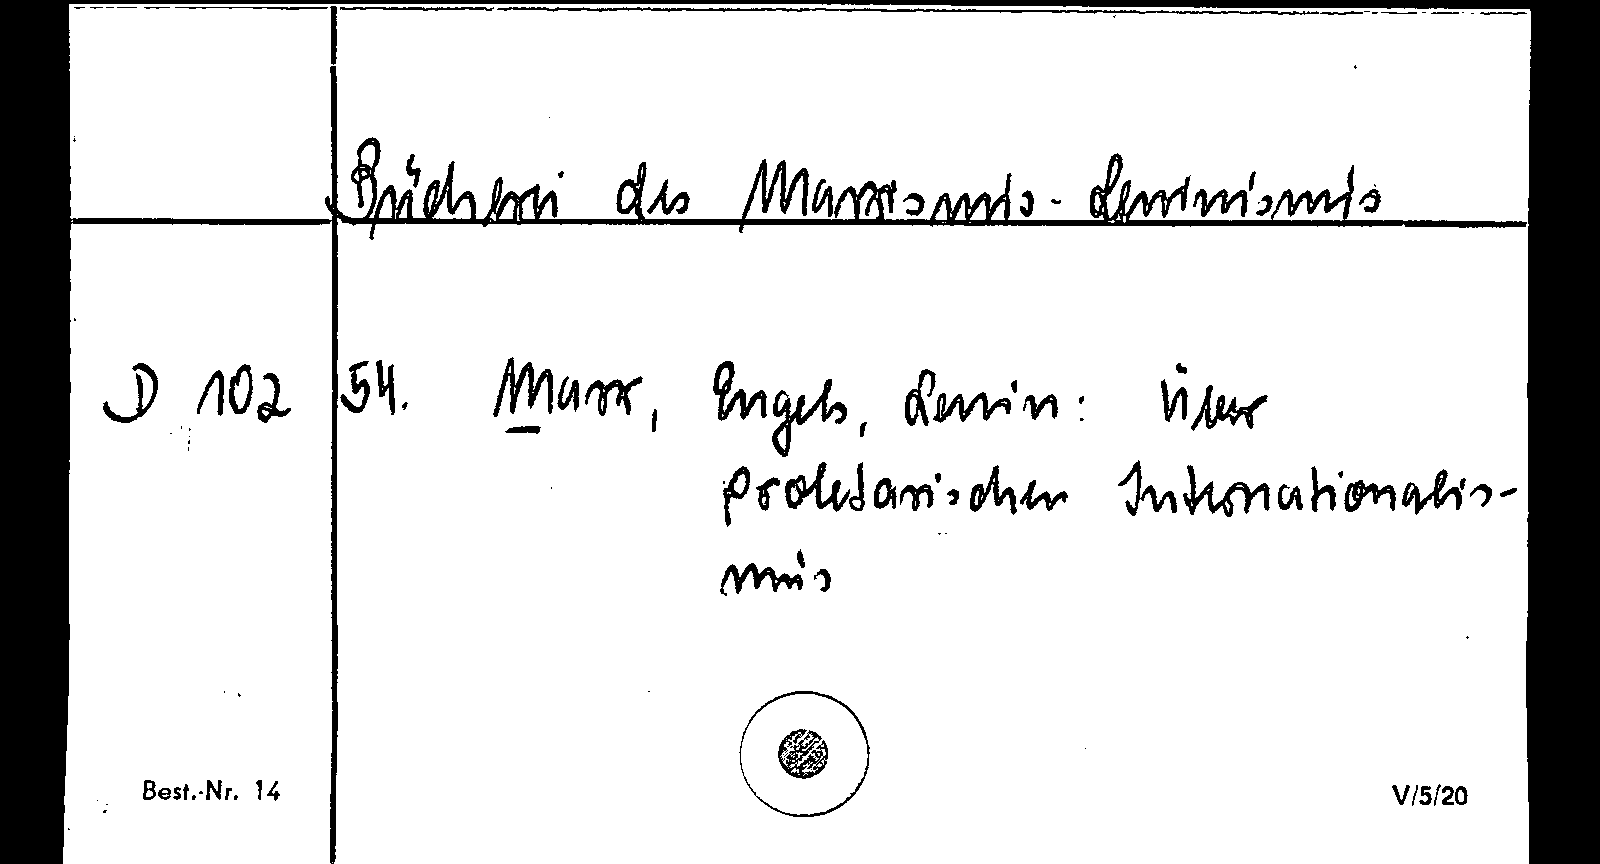 Bücherei des Marxismus-Leninismus
D 102 54. Marx, Engels, Lenin: Über
proletarischen Internationalis-
mus
Best.-Nr. 14
V/5/20